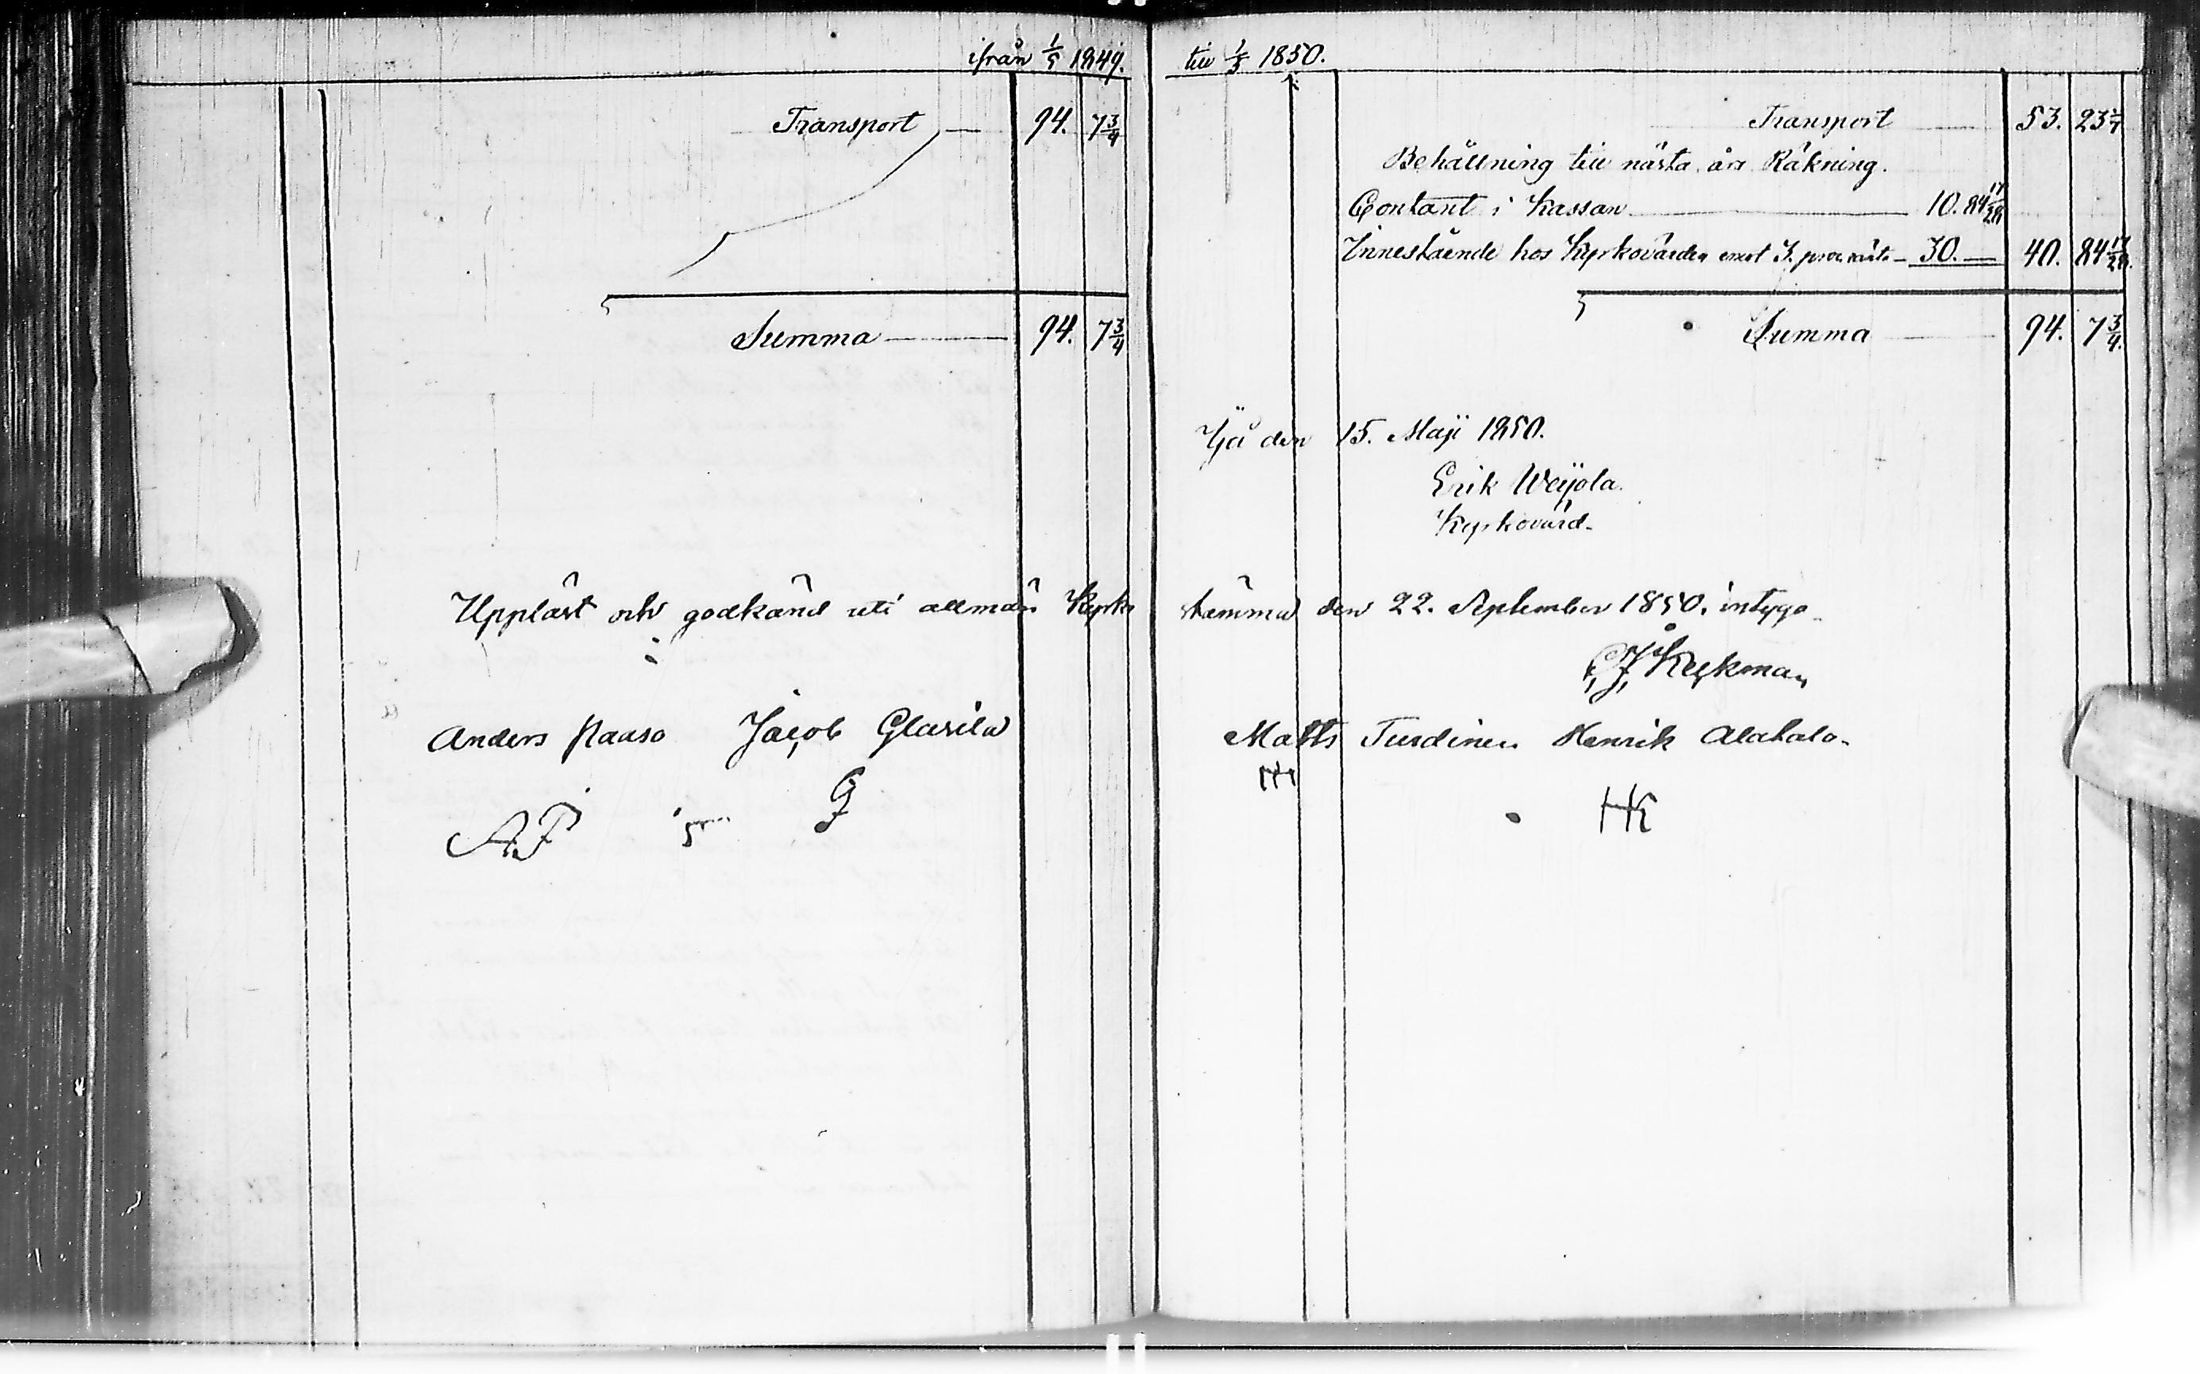 ifrån 1/5 1849.
Transport 94. 7 3/4
Summa 94. 7 3/4
till 1/5 1850.
Transport 53. 23 1/7
Behållning till nästa års Räkning.
Contant i Kassan 10. 84 17/28
Innestående hos Kyrkovärden emot 3. proc. ränta 30. 40. 84 17/28.
Summa 94. 7 3/4.
Ijå den 15. Maji 1850.
Erik Weijola.
Kyrkovärd.
Uppläst och godkänd uti allmän Kyrko stämma den 22. September 1850, intyga
Kyckman
Anders Paaso Jacob Glasila Matts Turdinen Henrik Alatalo.
AP G HK